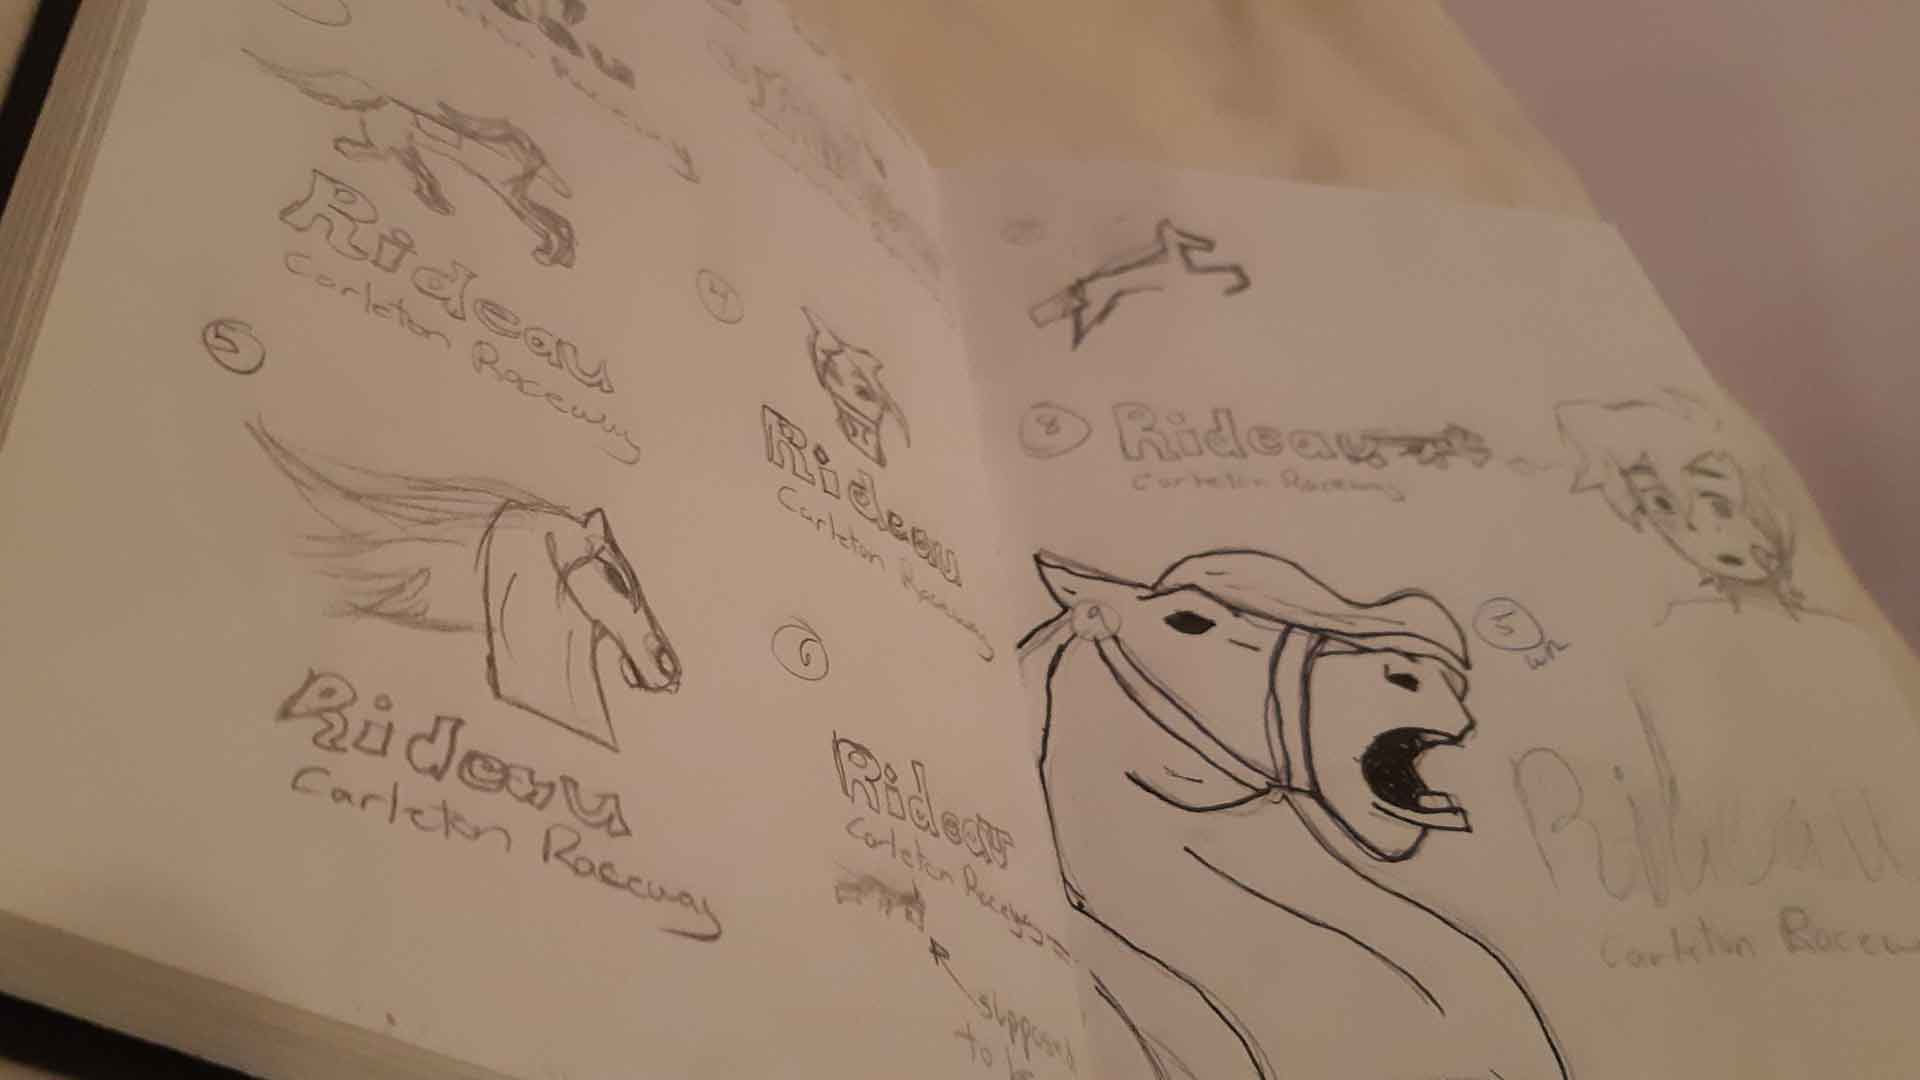 Raceway
Rideau
Carleton Raceway
4
Rideau
Carleton Raceway
5
Rideau
Carleton Raceway
6
Rideau
Carleton Raceway
supposed
to be
8
Rideau
Carleton Raceway
9
5
Rideau
Carleton Racew